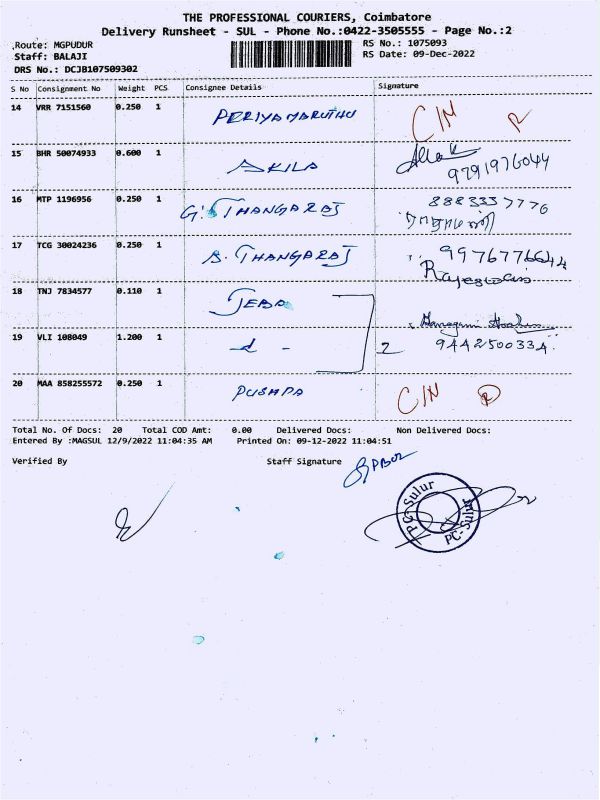 THE PROFESSIONAL COURIERS, Coimbatore
Delivery Runsheet - SUL - Phone No.:0422-3505555 - Page No.:2
Route: MGPUDUR
Staff: BALAJI
DRS No.: DCJB107509302
RS No.: 1075093
RS Date: 09-Dec-2022
S No Consignment No Weight PCS Consignee Details Signature
14 VRR 7151560 0.250 1 PERIYAMARUTHU C/N R
15 BHR 50074933 0.600 1 AKILA
9791976044
16 MTP 1196956 0.250 1 G. THANGARAJ 8883337776
17 TCG 30024236 0.250 1 S. THANGARAJ 9976776644
18 TNJ 7834577 0.110 1 JEBA
19 VLI 108049 1.200 1 -d- 2 9442500334
20 MAA 858255572 0.250 1 PUSHPA C/N R
Total No. Of Docs: 20 Total COD Amt: 0.00 Delivered Docs: Non Delivered Docs:
Entered By :MAGSUL 12/9/2022 11:04:35 AM Printed On: 09-12-2022 11:04:51
Verified By Staff Signature
PC-Sulur
PC-Sulur